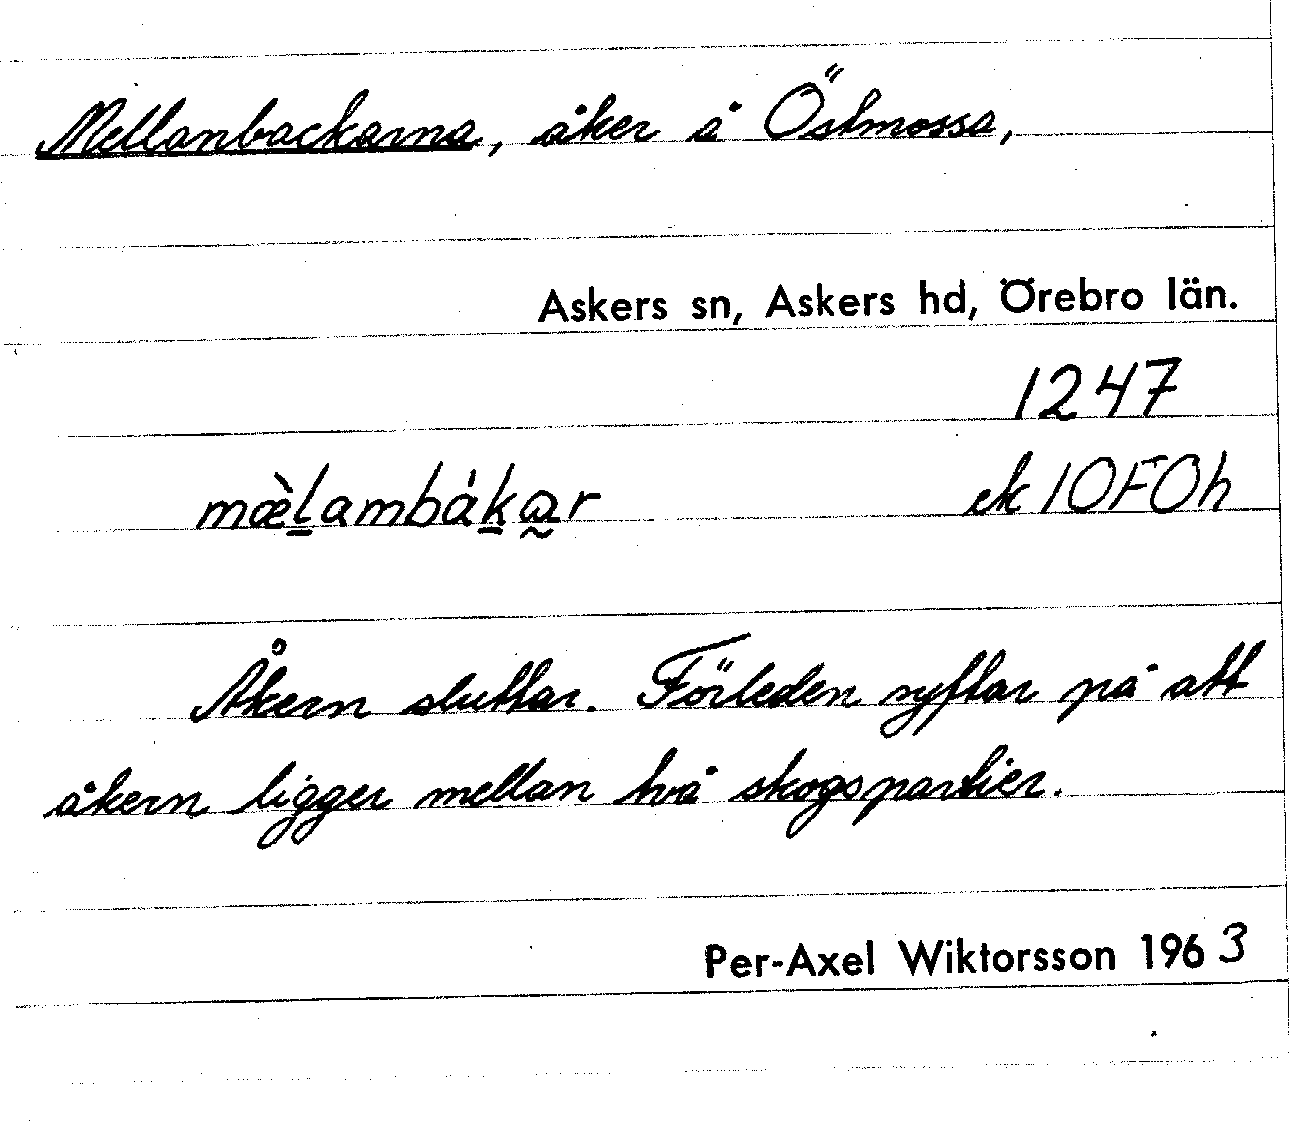 Mellanbackarna, åker å Östmossa,
Askers sn, Askers hd, Örebro län.
1247
mæ̀l̲ambák̲a̰r ek 10F0h
Åkern sluttar. Förleden syftar på att
åkern ligger mellan två skogspartier.
Per-Axel Wiktorsson 1963